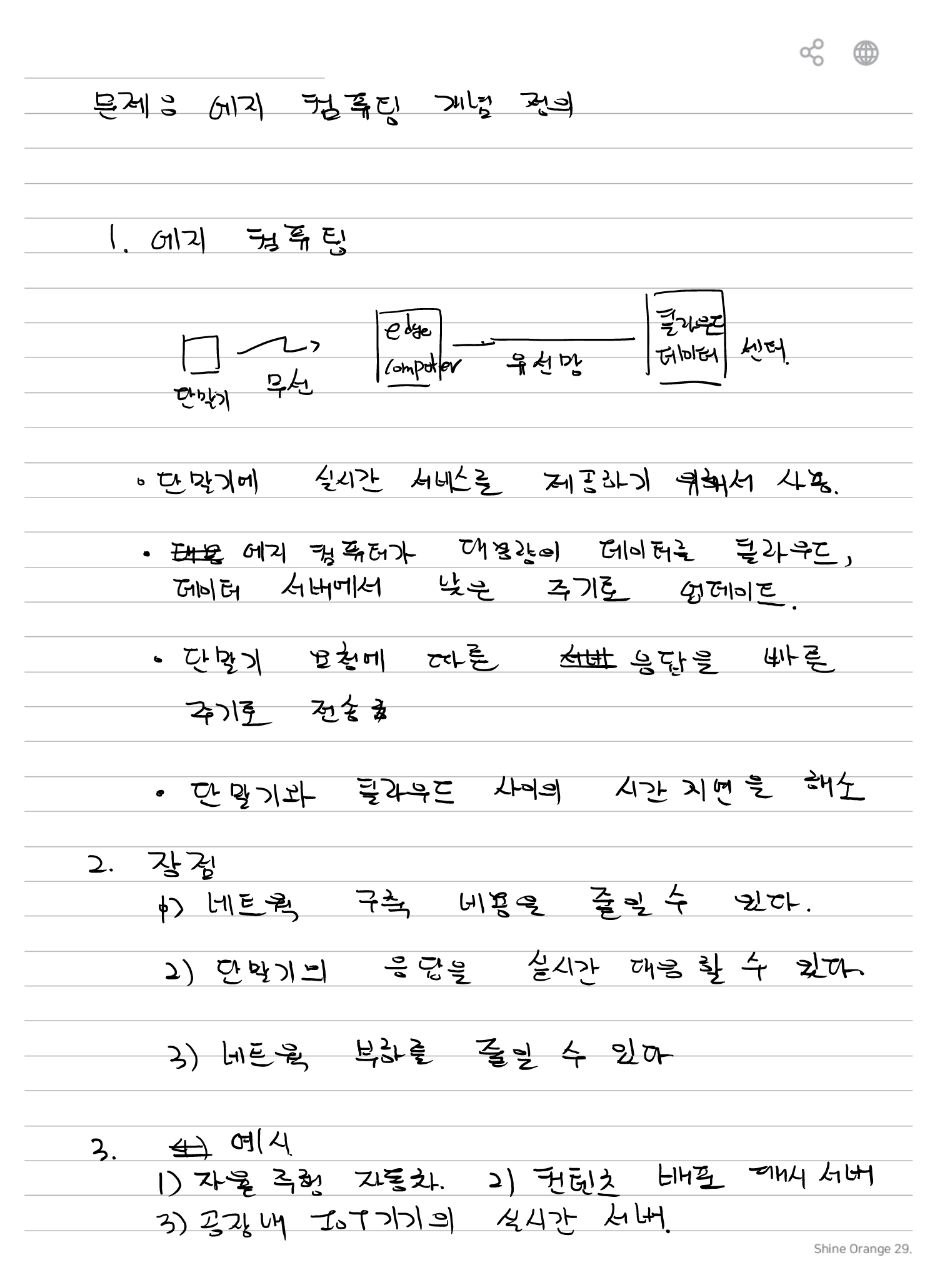 문제 8 에지 컴퓨팅 개념 정의
1. 에지 컴퓨팅
단말기
무선
edge
computer
유선망
클라우드
데이터 센터.
• 단말기에 실시간 서비스를 제공하기 위해서 사용.
• 에지 컴퓨터가 대용량의 데이터를 클라우드,
데이터 서버에서 낮은 주기로 업데이트.
• 단말기 요청에 따른 응답을 빠른
주기로 전송
• 단말기와 클라우드 사이의 시간 지연을 해소
2. 장점
1) 네트웍 구축 비용을 줄일 수 있다.
2) 단말기의 응답을 실시간 대응할 수 있다.
3) 네트웍 부하를 줄일 수 있다
3. 예시
1) 자율 주행 자동차. 2) 컨텐츠 배포 캐시 서버
3) 공장내 IoT기기의 실시간 서버.
Shine Orange 29.